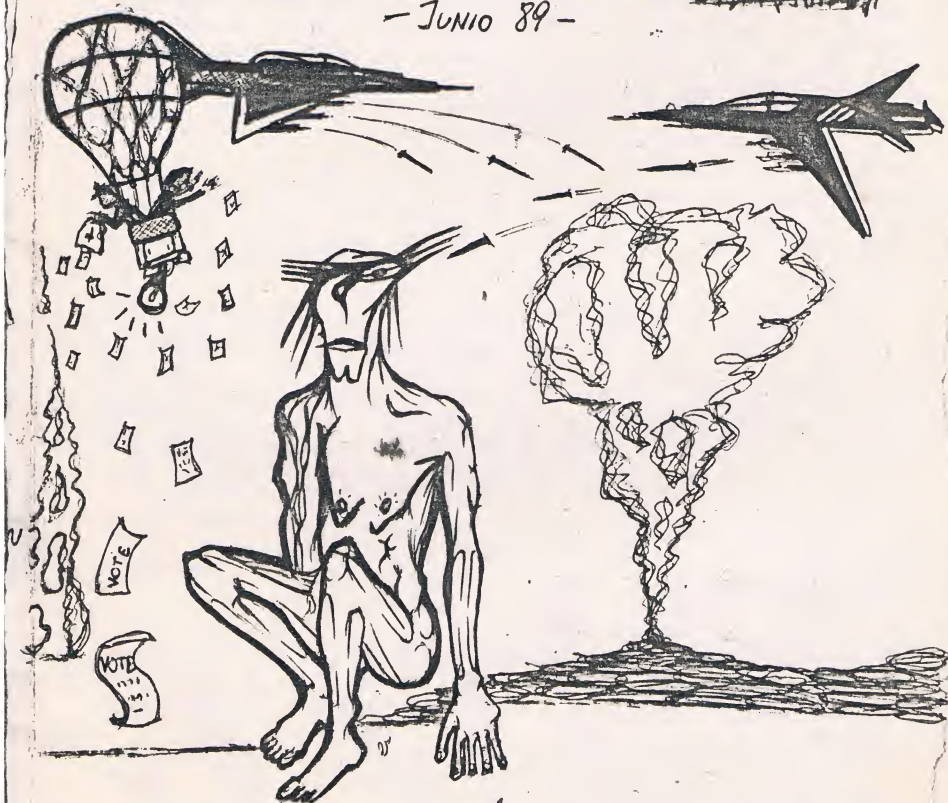 - JUNIO 89 -
VOTE
VOTE